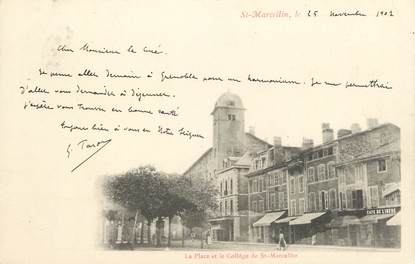 St-Marcellin, le 25 Novembre 1902
Cher Monsieur le Curé,
Je pense aller demain à Grenoble pour un harmonium. Je me permettrai
d'aller vous demander à déjeuner.
J'espère vous trouver en bonne santé
Toujours bien à vous en Notre Seigneur
CAFÉ DE L'ISÈRE
La Place et le Collège de St-Marcellin